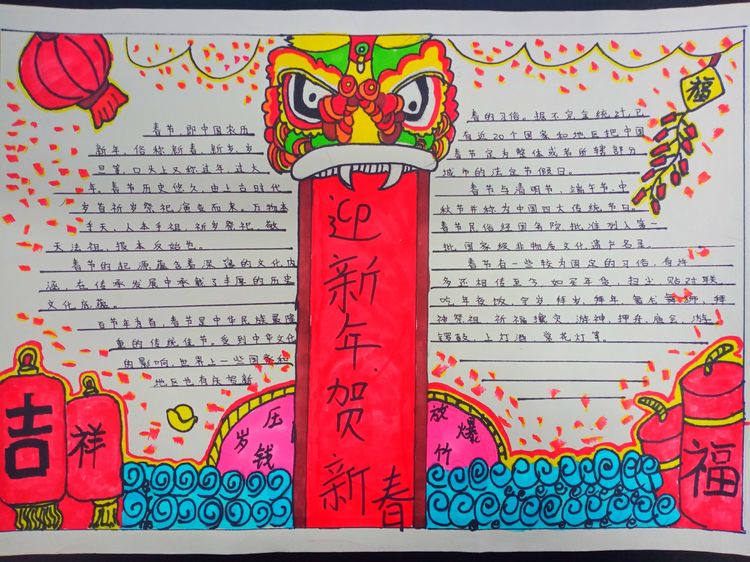 春节,即中国农历
新年,俗称新春、新岁、岁
旦等,口头上又称过年、过大
年。春节历史悠久,由上古时代
岁首祈岁祭祀演变而来。万物本
乎天,人本乎祖,祈岁祭祀、敬
天法祖,报本反始也。
春节的起源蕴含着深邃的文化内
涵,在传承发展中承载了丰厚的历史
文化底蕴。
百节年为首,春节是中华民族最隆
重的传统佳节。受到中华文化
的影响,世界上一些国家和
地区也有庆贺新
迎新年贺新春
春的习俗。据不完全统计,已
有近20个国家和地区把中国
春节定为整体或者所辖部分
城市的法定节假日。
春节与清明节、端午节、中
秋节并称为中国四大传统节日。
春节民俗经国务院批准列入第一
批国家级非物质文化遗产名录。
春节有一些较为固定的习俗,有许
多还相传至今,如买年货、扫尘、贴对联、
吃年夜饭、守岁、拜岁、拜年、舞龙舞狮、拜
神祭祖、祈福攘灾、游神、押舟、庙会、游
锣鼓、上灯酒、赏花灯等。
福
吉
祥
压
岁钱
放爆
竹
福